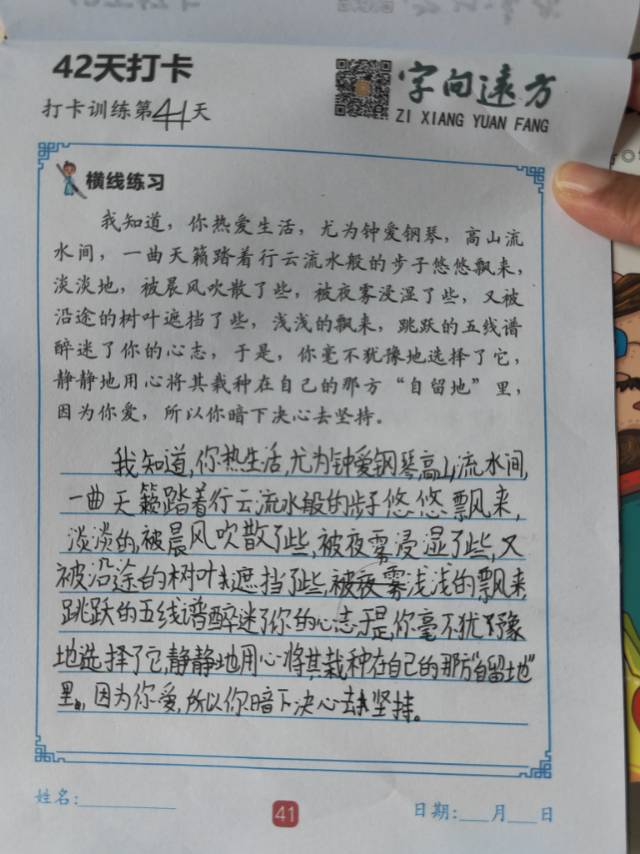 42天打卡
打卡训练第41天
字向遠方
ZI XIANG YUAN FANG
横线练习
我知道，你热爱生活，尤为钟爱钢琴，高山流
水间，一曲天籁踏着行云流水般的步子悠悠飘来，
淡淡地，被晨风吹散了些，被夜雾浸湿了些，又被
沿途的树叶遮挡了些，浅浅的飘来，跳跃的五线谱
醉迷了你的心志，于是，你毫不犹豫地选择了它，
静静地用心将其栽种在自己的那方“自留地”里，
因为你爱，所以你暗下决心去坚持。
我知道,你热生活,尤为钟爱钢琴,高山流水间,
一曲天籁踏着行云流水般的步子悠悠飘来,
淡淡的,被晨风吹散了些,被夜雾浸湿了些,又
被沿途的树叶遮挡了些,被夜雾浅浅的飘来
跳跃的五线谱醉迷了你的心志于是你毫不犹豫
地选择了它,静静地用心将其栽种在自己的那方“自留地”
里,因为你爱,所以你暗下决心去坚持。
姓名:
41
日期: 月 日